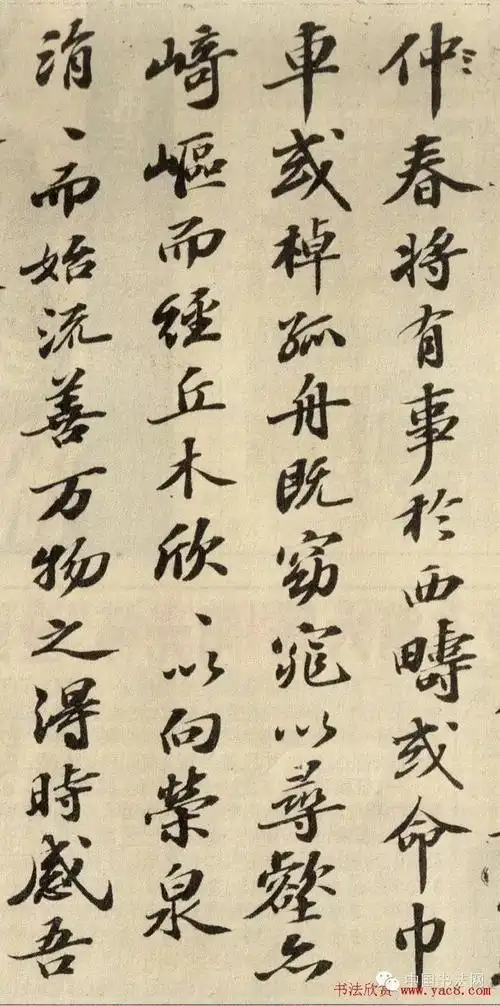 仲春将有事於西疇或命巾
車或棹孤舟既窈窕以尋壑亦
崎嶇而經丘木欣、以向榮泉
涓、而始流善万物之得時感吾
中国书法网
书法欣赏 www.yac8.com